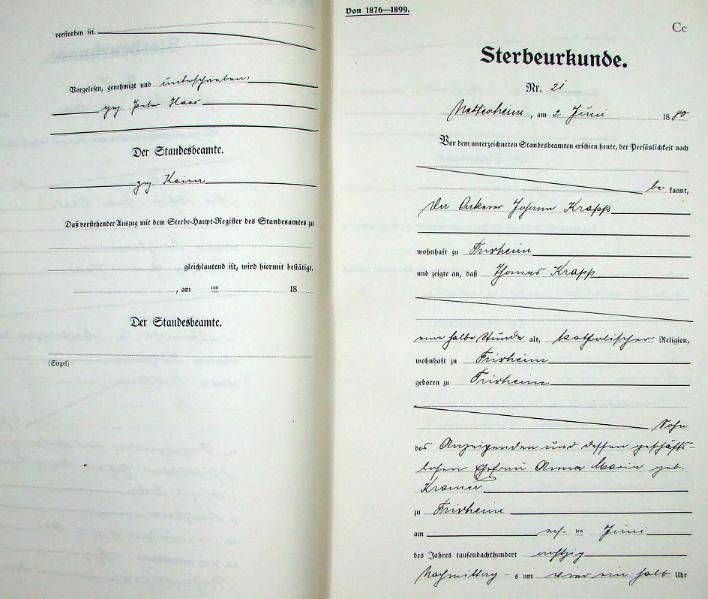 verstorben sei.
Vorgelesen, genehmigt und unterschrieben.
gez Peter Haas
Der Standesbeamte.
gez
Daß vorstehender Auszug mit dem Sterbe-Haupt-Register des Standesamtes zu
gleichlautend ist, wird hiermit bestätigt.
, am ten 18
Der Standesbeamte.
(Siegel)
Von 1876—1899.
Cc
Sterbeurkunde.
Nr. 21
Nattenheim, am 2 Juni 1880
Vor dem unterzeichneten Standesbeamten erschien heute, der Persönlichkeit nach
be kannt,
der Ackerer Johann Krapp
wohnhaft zu
und zeigte an, daß Thomas Krapp
eine halbe Stunde alt, katholischer Religion,
wohnhaft zu
geboren zu
Sohn
des Anzeigenden und dessen geschäfts-
losen Ehefrau Anna Maria geb
Kramer
zu
am ten Juni
des Jahres tausendachthundert achtzig
Nachmittag s um ein halb Uhr